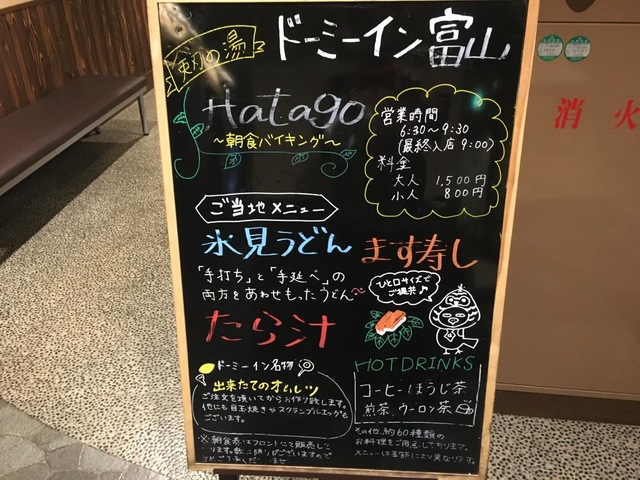 の湯 ドーミーイン富山
Hatago
～朝食バイキング～
営業時間
6:30～9:30
(最終入店 9:00)
料金
大人 1,500円
小人 800円
ご当地メニュー
氷見うどん
「手打ち」と「手延べ」の
両方をあわせもったうどん
ます寿し
ひと口サイズで
ご提供♪
たら汁
ドーミーイン名物
出来たてのオムレツ
ご注文を頂いてからお作り致します。
他にも目玉焼きやスクランブルエッグも
ございます。
HOT DRINKS
コーヒー・ほうじ茶
煎茶、ウーロン茶
その他、約60種類の
お料理をご用意しております。
メニューは季節により異なります。
※朝食券はフロントにて販売して
消火